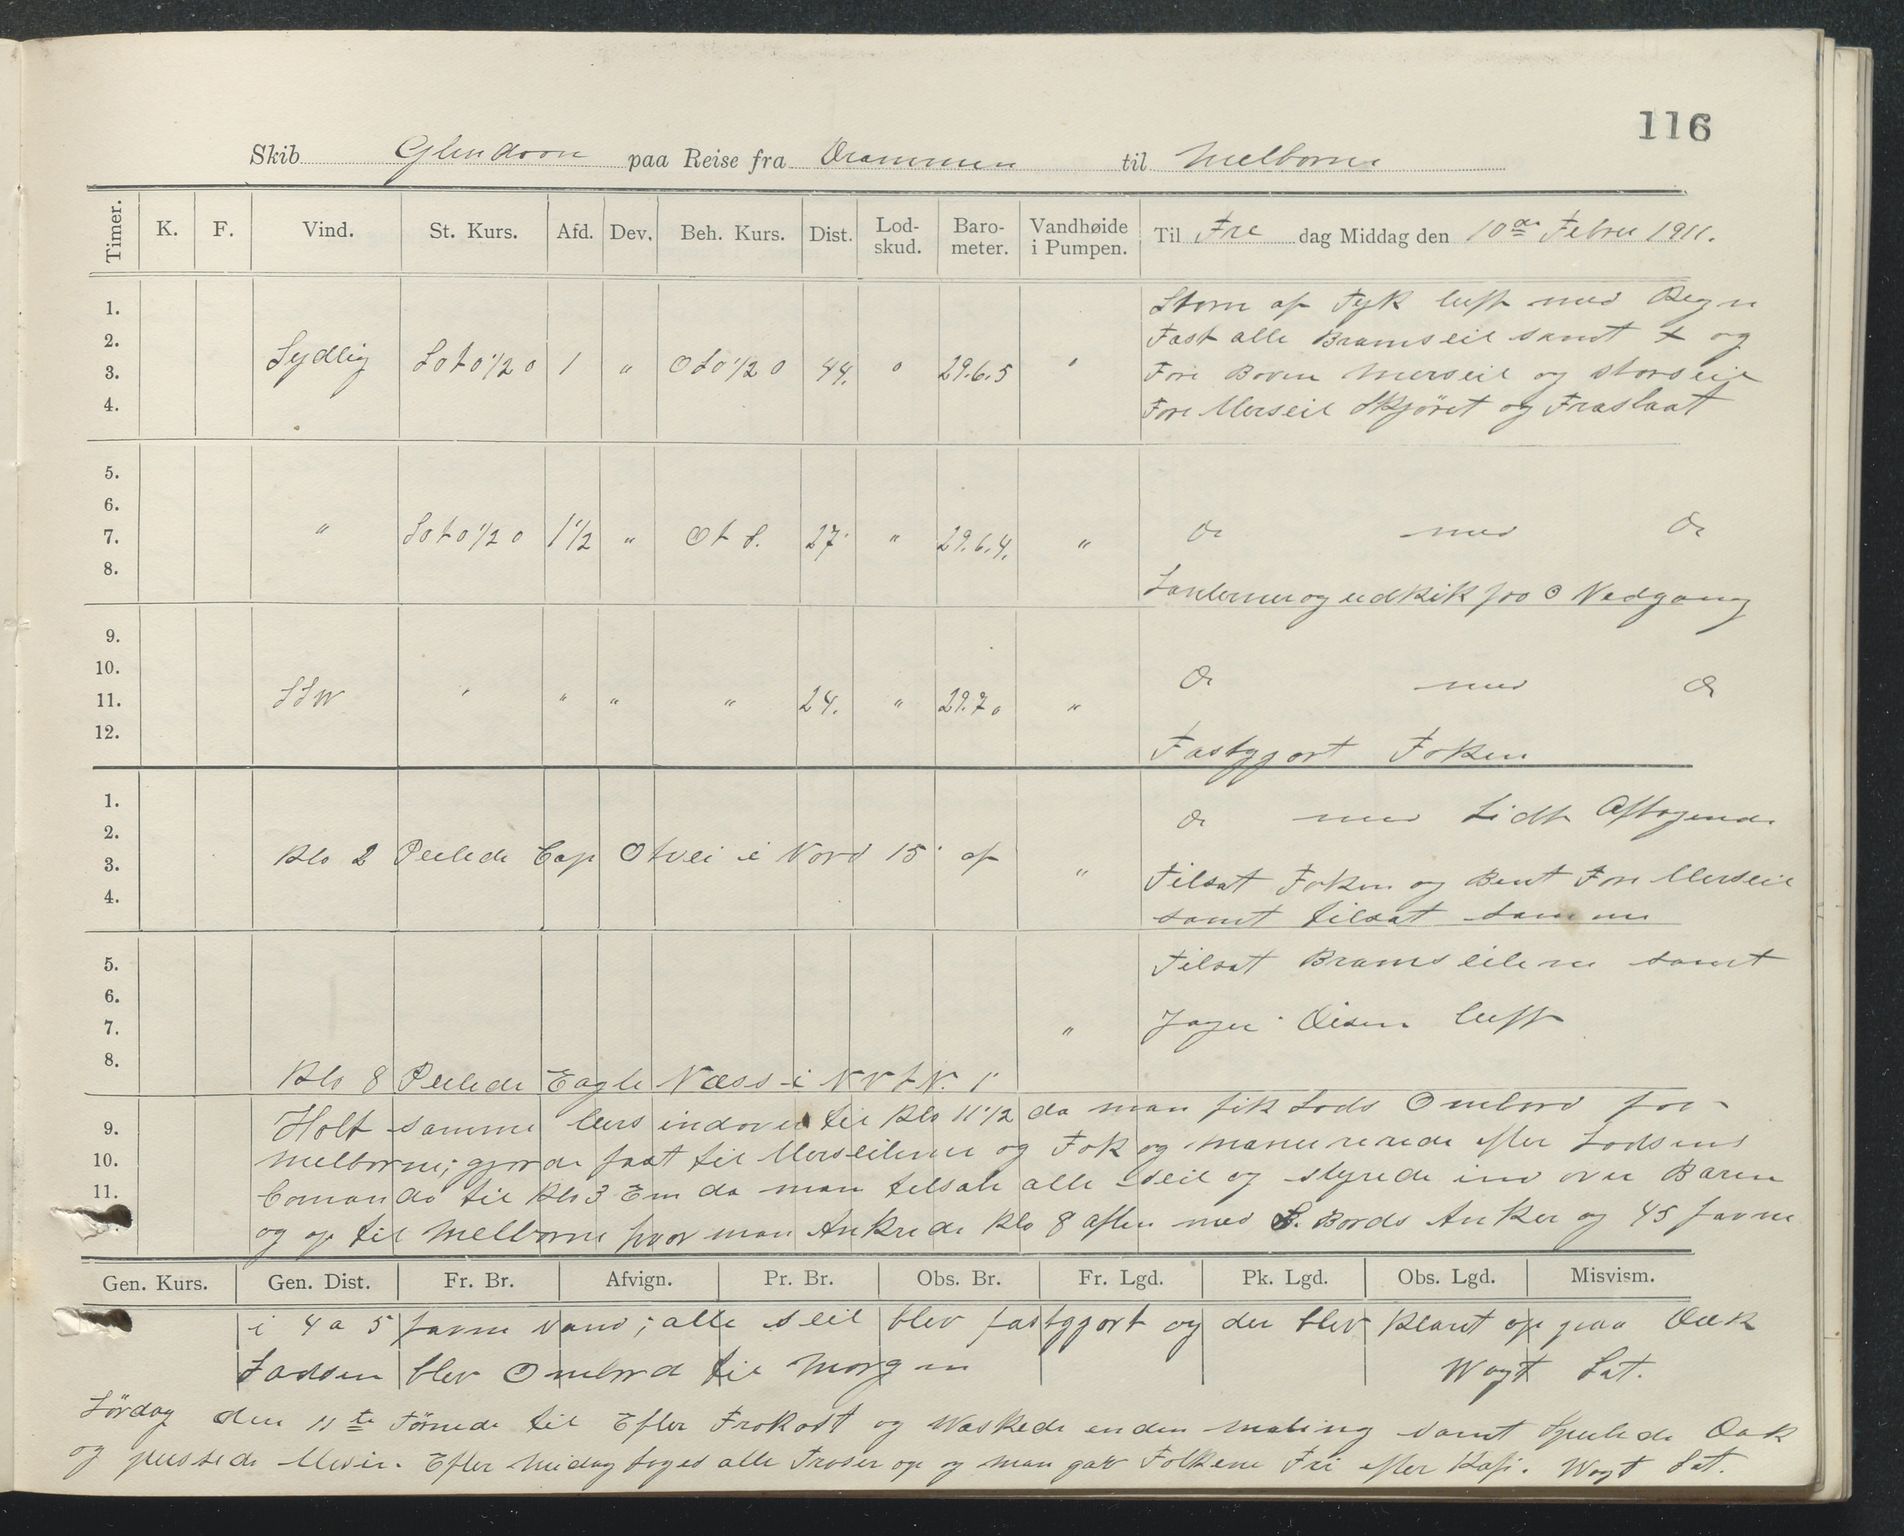 116
Skib Glendoon paa Reise fra Drammen til Melborne
Timer. K. F. Vind. St. Kurs. Afd. Dev. Beh. Kurs. Dist. Lod-skud. Baro-meter. Vandhøide i Pumpen. Til Fre dag Middag den 10de Febru 1911.
1.
2.
3.
4.
Sydlig SOtO½O 1 " OSO½O 44. " 29.6.5 "
Storm af Tyk luft med Regn
Fast alle Bramseil samt + og
Fore Boven Merseil og storseil
Fore Merseil Skjöret og Fraslaat
5.
6.
7.
8.
" SOtO½O 1½ " OtS. 27. " 29.6.4. "
Do med Do
Lanterner og udkik fro O Nedgang
9.
10.
11.
12.
SSW " " " " 24. " 29.7.0 "
Do med Do
Fastgjort Foken
1.
2.
3.
4.
Klo 2 Peilede Cap Otvei i Nord 15' af "
Do med Lidt Aftagende
Tilsat Foken og Bent Fore Merseil
samt tilsat samme
5.
6.
7.
8.
"
Tilsat Bramseilene samt
Jager Disen luft
Klo 8 Peilede Eagle Næss i NVtN. 1'
9.
10.
11.
Holt samme Curs indover til Klo 11½ da man fik Lods Ombord for
Melborne; gjorde fast til Merseilene og Fok og manurerede efter Lodsens
Comando til Klo 3 Em da man tilsate alle seil og styrede ind over Baren
og op til Melborne hvor man Ankrede Klo 8 aften med S. Bords Anker og 45 favne
Gen. Kurs. Gen. Dist. Fr. Br. Afvign. Pr. Br. Obs. Br. Fr. Lgd. Pk. Lgd. Obs. Lgd. Misvism.
i 4 a 5 favne vand; alle seil blev fastgjort og der blev Klaret op paa Dæk
Lodsen blev Ombord til Morgen Wagt Sat.
Lördag den 11te Törnede til Efter Frokost og Waskede enden maling samt Spulede Dæk
og pussede Mesin. Efter Midag toges alle Troser op og man gav Folkene Fri efter Kafi. Wagt Sat.